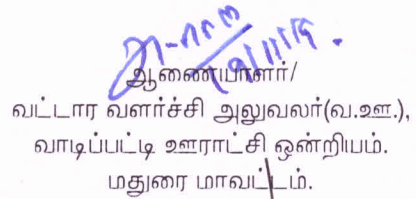 ஆணையாளர்/
வட்டார வளர்ச்சி அலுவலர்(வ.ஊ.),
வாடிப்பட்டி ஊராட்சி ஒன்றியம்.
மதுரை மாவட்டம்.